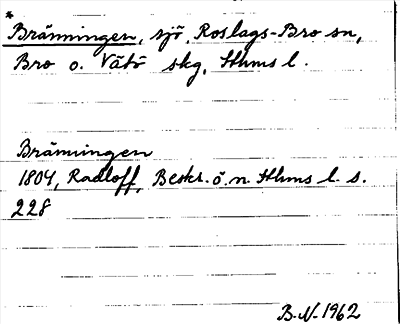 *
Bränningen, sjö, Roslags-Bro sn,
Bro o. Vätö skg, Sthms l.
Bränningen
1804, Radloff, Beskr. ö. n. Sthms l. s.
228
B.N. 1962